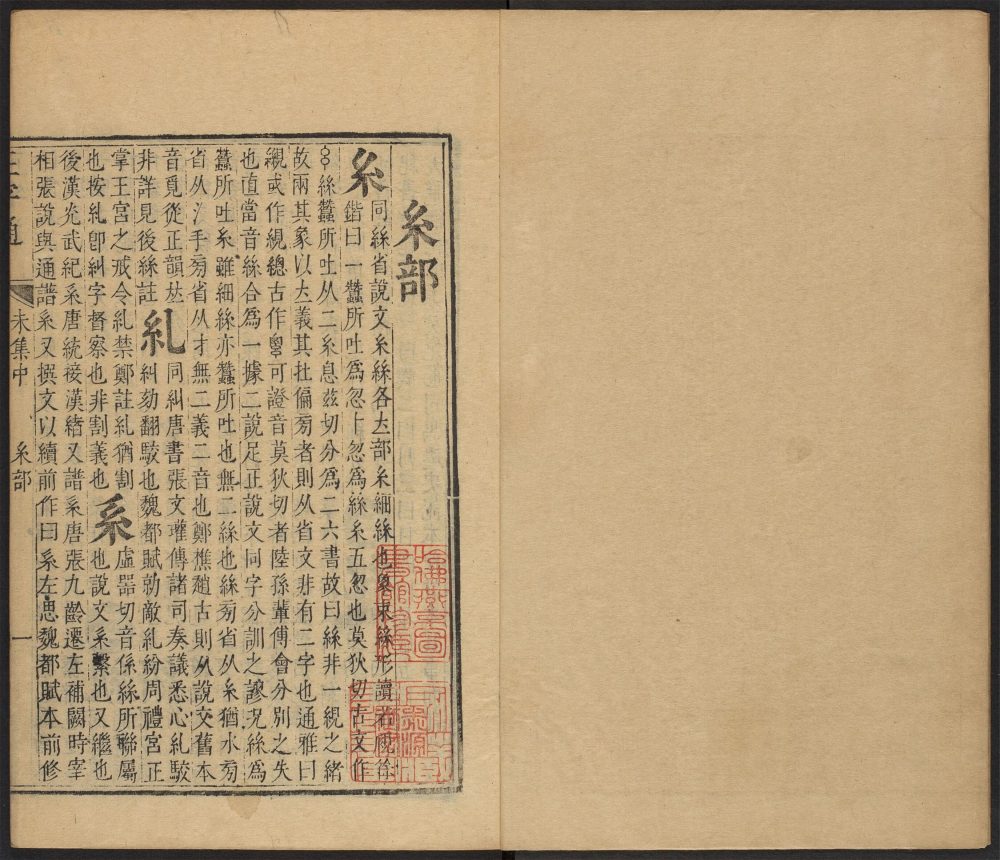 糸部
糸同絲省說文糸絲各𠫓部糸細絲也象束絲形讀若覛徐
鍇曰一蠶所吐爲忽十忽爲絲糸五忽也莫狄切古文作
𢆯絲蠶所吐从二糸息兹切分爲二六書故曰絲非一緄之緒
故兩其象以𠫓義其扗偏旁者則从省文非有二字也通雅曰
緄或作緄總古作可證音莫狄切者陸孫輩傅會分別之失
也直當音絲合爲一據二說足正說文同字分訓之謬况絲爲
蠶所吐糸雖細絲亦蠶所吐也無二絲也絲旁省从糸猶水旁
省从氵手旁省从扌無二義二音也鄭樵趙古則从說文舊本
音覓從正韻𠫓非詳見後絲註
糺同糾唐書張文瓘傳諸司奏議悉心糺駮
糾劾翻駮也魏都賦勍敵糺紛周禮宮正
掌王宮之戒令糺禁鄭註糺猶割
也按糺卽糾字督察也非割義也
系虛器切音係絲所聯屬
也說文系繫也又繼也
後漢光武紀系唐統接漢緖又譜系唐張九齡遷左補闕時宰
相張說與通譜系又撰文以續前作曰系左思魏都賦本前修
正字通
未集中
糸部
一
哈佛燕京圖
書館